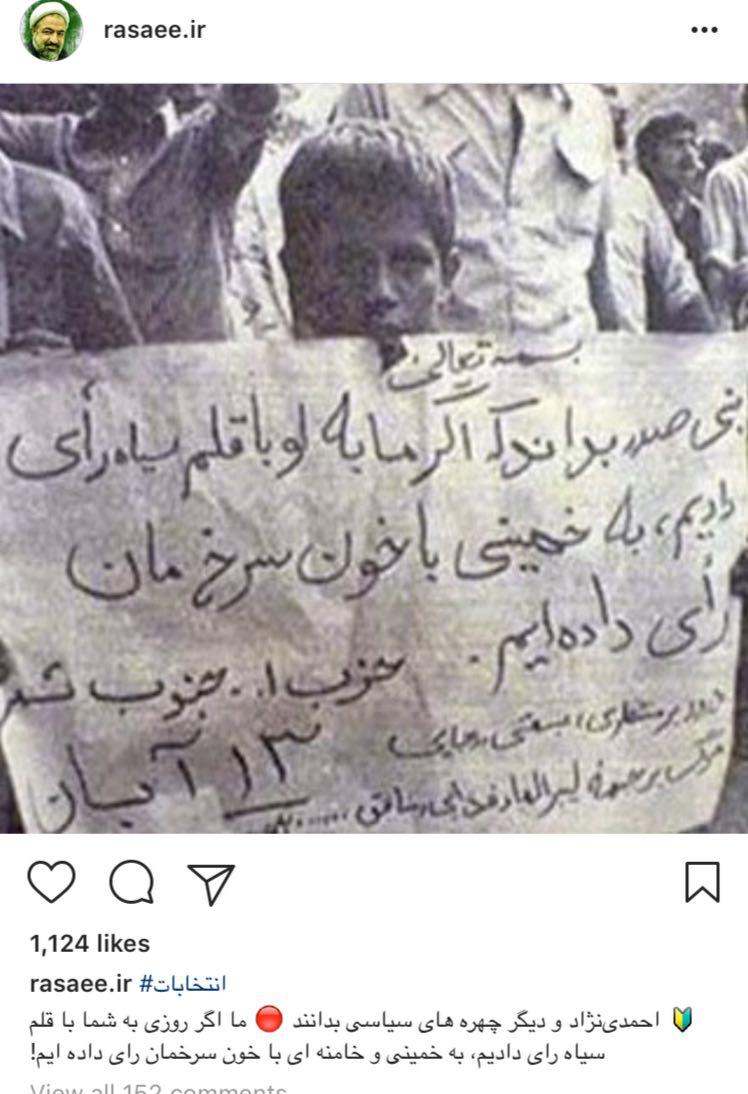 rasaee.ir
بسمه تعالی
بنی صدر بداند که اگر ما به او با قلم سیاه رأی
دادیم، به خمینی با خون سرخ مان
رأی داده ایم.
حزب ا.. جنوب
درود بر منتظری، بهشتی، رجایی
مرگ بر جبهه لیبرالها، فدایی، منافق
۱۳ آبان
1,124 likes
rasaee.ir #انتخابات
🔰 احمدی‌نژاد و دیگر چهره های سیاسی بدانند 🔴 ما اگر روزی به شما با قلم
سیاه رای دادیم، به خمینی و خامنه ای با خون سرخمان رای داده ایم!
View all 152 comments